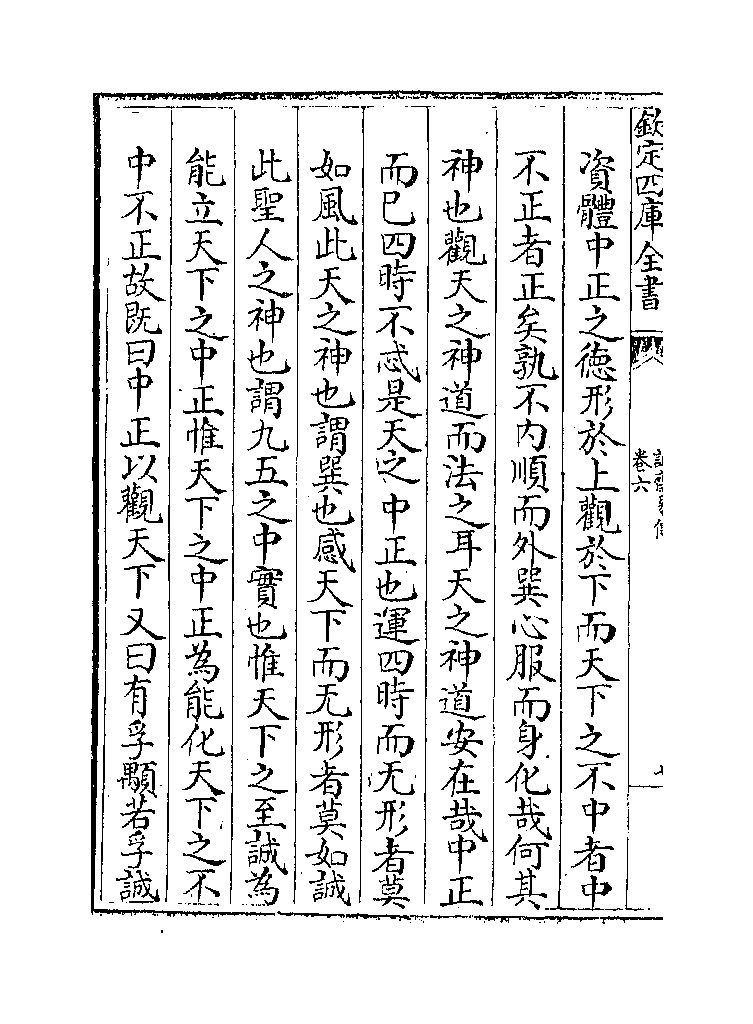 欽定四庫全書
卷六
資體中正之徳形於上觀於下而天下之不中者中
不正者正矣孰不内順而外巽心服而身化哉何其
神也觀天之神道而法之耳天之神道安在哉中正
而已四時不忒是天之中正也運四時而无形者莫
如風此天之神也謂巽也感天下而无形者莫如誠
此聖人之神也謂九五之中實也惟天下之至誠為
能立天下之中正惟天下之中正為能化天下之不
中不正故既曰中正以觀天下又曰有孚顒若孚誠